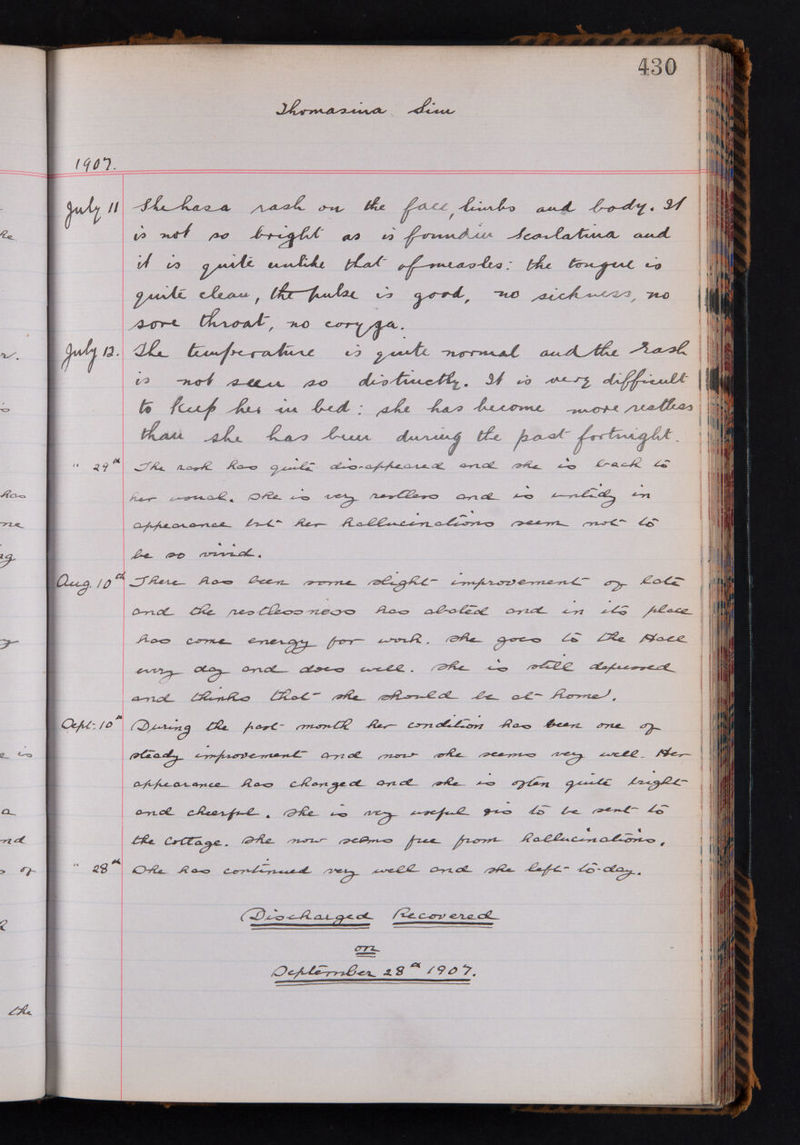 430
Thomasina Sim
1907.
July 11 She has a rash on the face, limbs and body. It
is not so bright as is found in Scarlatina and
it is quite unlike that of measles: the tongue is
quite clean, the pulse is good, no sickness, no
sore throat, no coryza.
July 12. The temperature is quite normal and the rash
is not seen so distinctly. It is very difficult
to keep her in bed: she has become more restless
than she has been during the past fortnight.
" 29th The rash has quite disappeared and she is back to
her usual. She is very restless and is untidy in
appearance but her hallucinations seem not to
be so vivid.
Aug. 10th There has been some slight improvement of late
and the restlessness has abated and in its place
has come energy for work. She goes to the Hall
every day and does well. She is still depressed
and thinks that she should be at home.
Sept. 10th During the past month her condition has been one of
steady improvement and now she seems very well. Her
appearance has changed and she is often quite bright
and cheerful. She is very useful & is to be sent to
the Cottage. She now seems free from hallucinations.
" 28th She has continued very well and she left to-day.
Discharged Recovered
on
September 28th 1907.